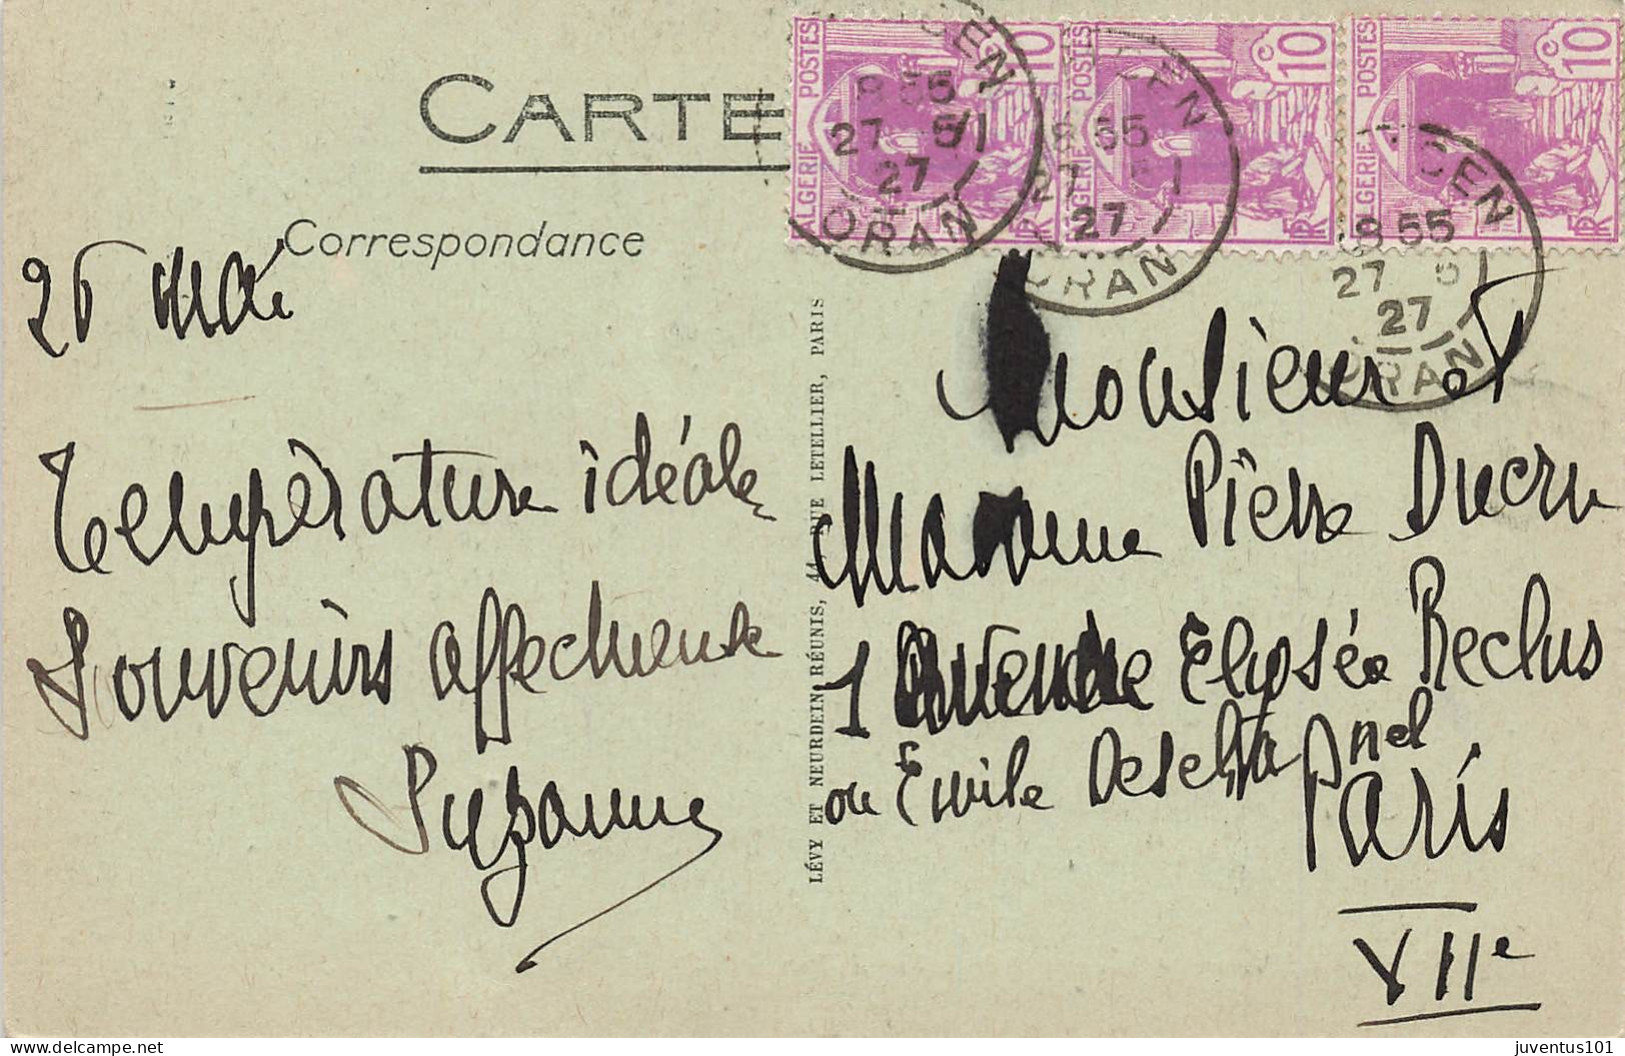 CARTE
Correspondance
26 mai
Température idéale
Souvenirs affectueux
Suzanne
LÉVY ET NEURDEIN RÉUNIS, 44, RUE LETELLIER, PARIS
POSTES
ALGERIE
10
POSTES
ALGERIE
10
POSTES
ALGERIE
10
8 55
27 5
27
ORAN
8 55
27 5
27
ORAN
8 55
27 5
27
ORAN
Monsieur et
Madame Pierre Ducru
1 Avenue Elysée Reclus
ou Emile
Paris
VIIe
juventus101